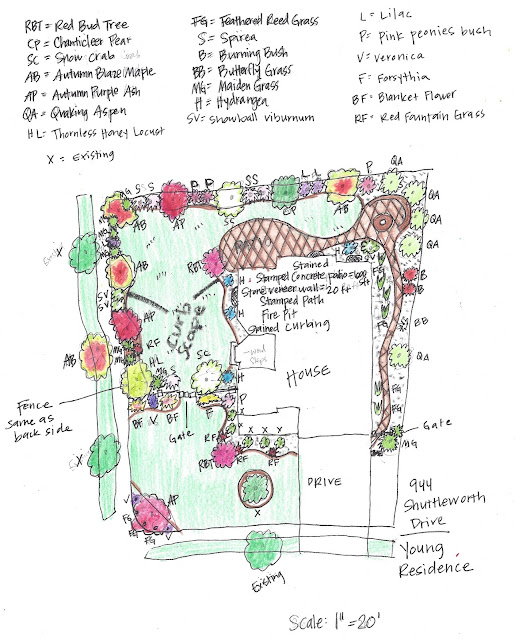 RBT = Red Bud Tree
CP = Chanticleer Pear
SC = Snow Crab
AB = Autumn Blaze Maple
AP = Autumn Purple Ash
QA = Quaking Aspen
HL = Thornless Honey Locust
X = Existing
FG = Feathered Reed Grass
S = Spirea
B = Burning Bush
BB = Butterfly Grass
MG = Maiden Grass
H = Hydrangea
SV = Snowball viburnum
L = Lilac
P = Pink peonies bush
V = Veronica
F = Forsythia
BF = Blanket Flower
RF = Red Fountain Grass
MG S S P P SS L L P QA
AB AP SC CP AB
QA
QA
QA
X
AB
RBT
Stained
H = Stamped Concrete patio =
Stone veneer wall = 20 ft
Stamped Path
H Fire Pit
Stained Curbing
Curb Scape
SV
SV
B
B
BB
QA
AP
RF
MG
HL
MG S
SC
AB
H
HOUSE
Fence
same as
back side
BF V BF
Gate
P
FG
FG
Gate
MG
RF
X X X X
RF RF
RBT
X
DRIVE
X
V AP
FG
FG FG
944
Shuttleworth
Drive
Young
Residence
Existing
Scale: 1" = 20'